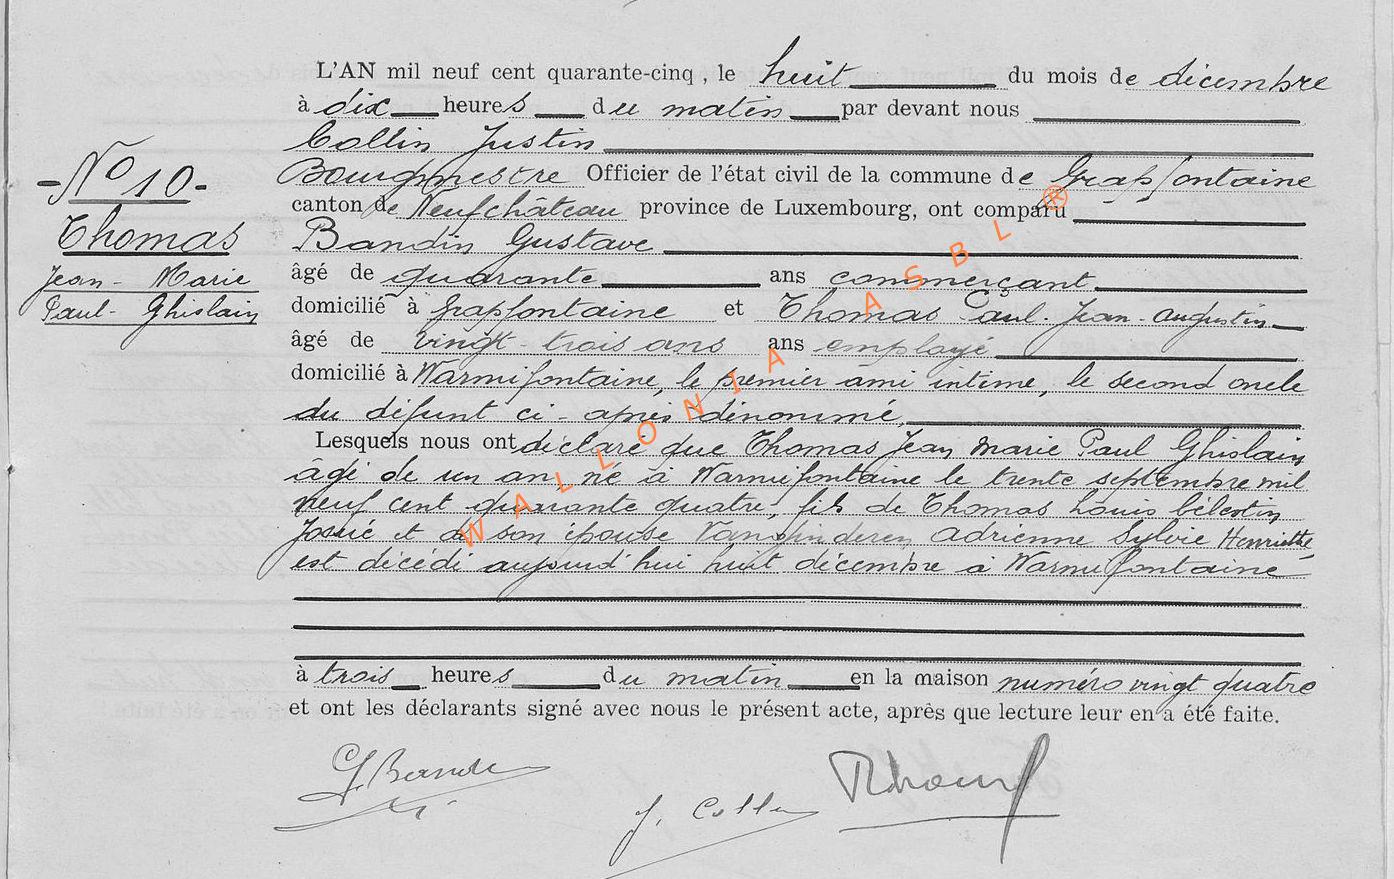 L'AN mil neuf cent quarante-cinq, le huit du mois de décembre
à dix heures du matin par devant nous
Collin Justin
-N° 10-
Bourgmestre Officier de l'état civil de la commune de Grapfontaine
canton de Neufchâteau province de Luxembourg, ont comparu
Thomas
Baudin Gustave
Jean-Marie
âgé de quarante ans commerçant
Paul-Ghislain
domicilié à Grapfontaine et Thomas Paul-Jean-Augustin
âgé de vingt-trois ans ans employé
domicilié à Warmifontaine, le premier ami intime, le second oncle
du défunt ci-après dénommé
Lesquels nous ont déclaré que Thomas Jean Marie Paul Ghislain
âgé de un an, né à Warmifontaine le trente septembre mil
neuf cent quarante quatre, fils de Thomas Louis Célestin
Josué et de son épouse Adrienne Sylvie Henriette
est décédé aujourd'hui huit décembre à Warmifontaine
à trois heures du matin en la maison numéro vingt quatre
et ont les déclarants signé avec nous le présent acte, après que lecture leur en a été faite.
J. Collin
WALLONIA ASBL ®